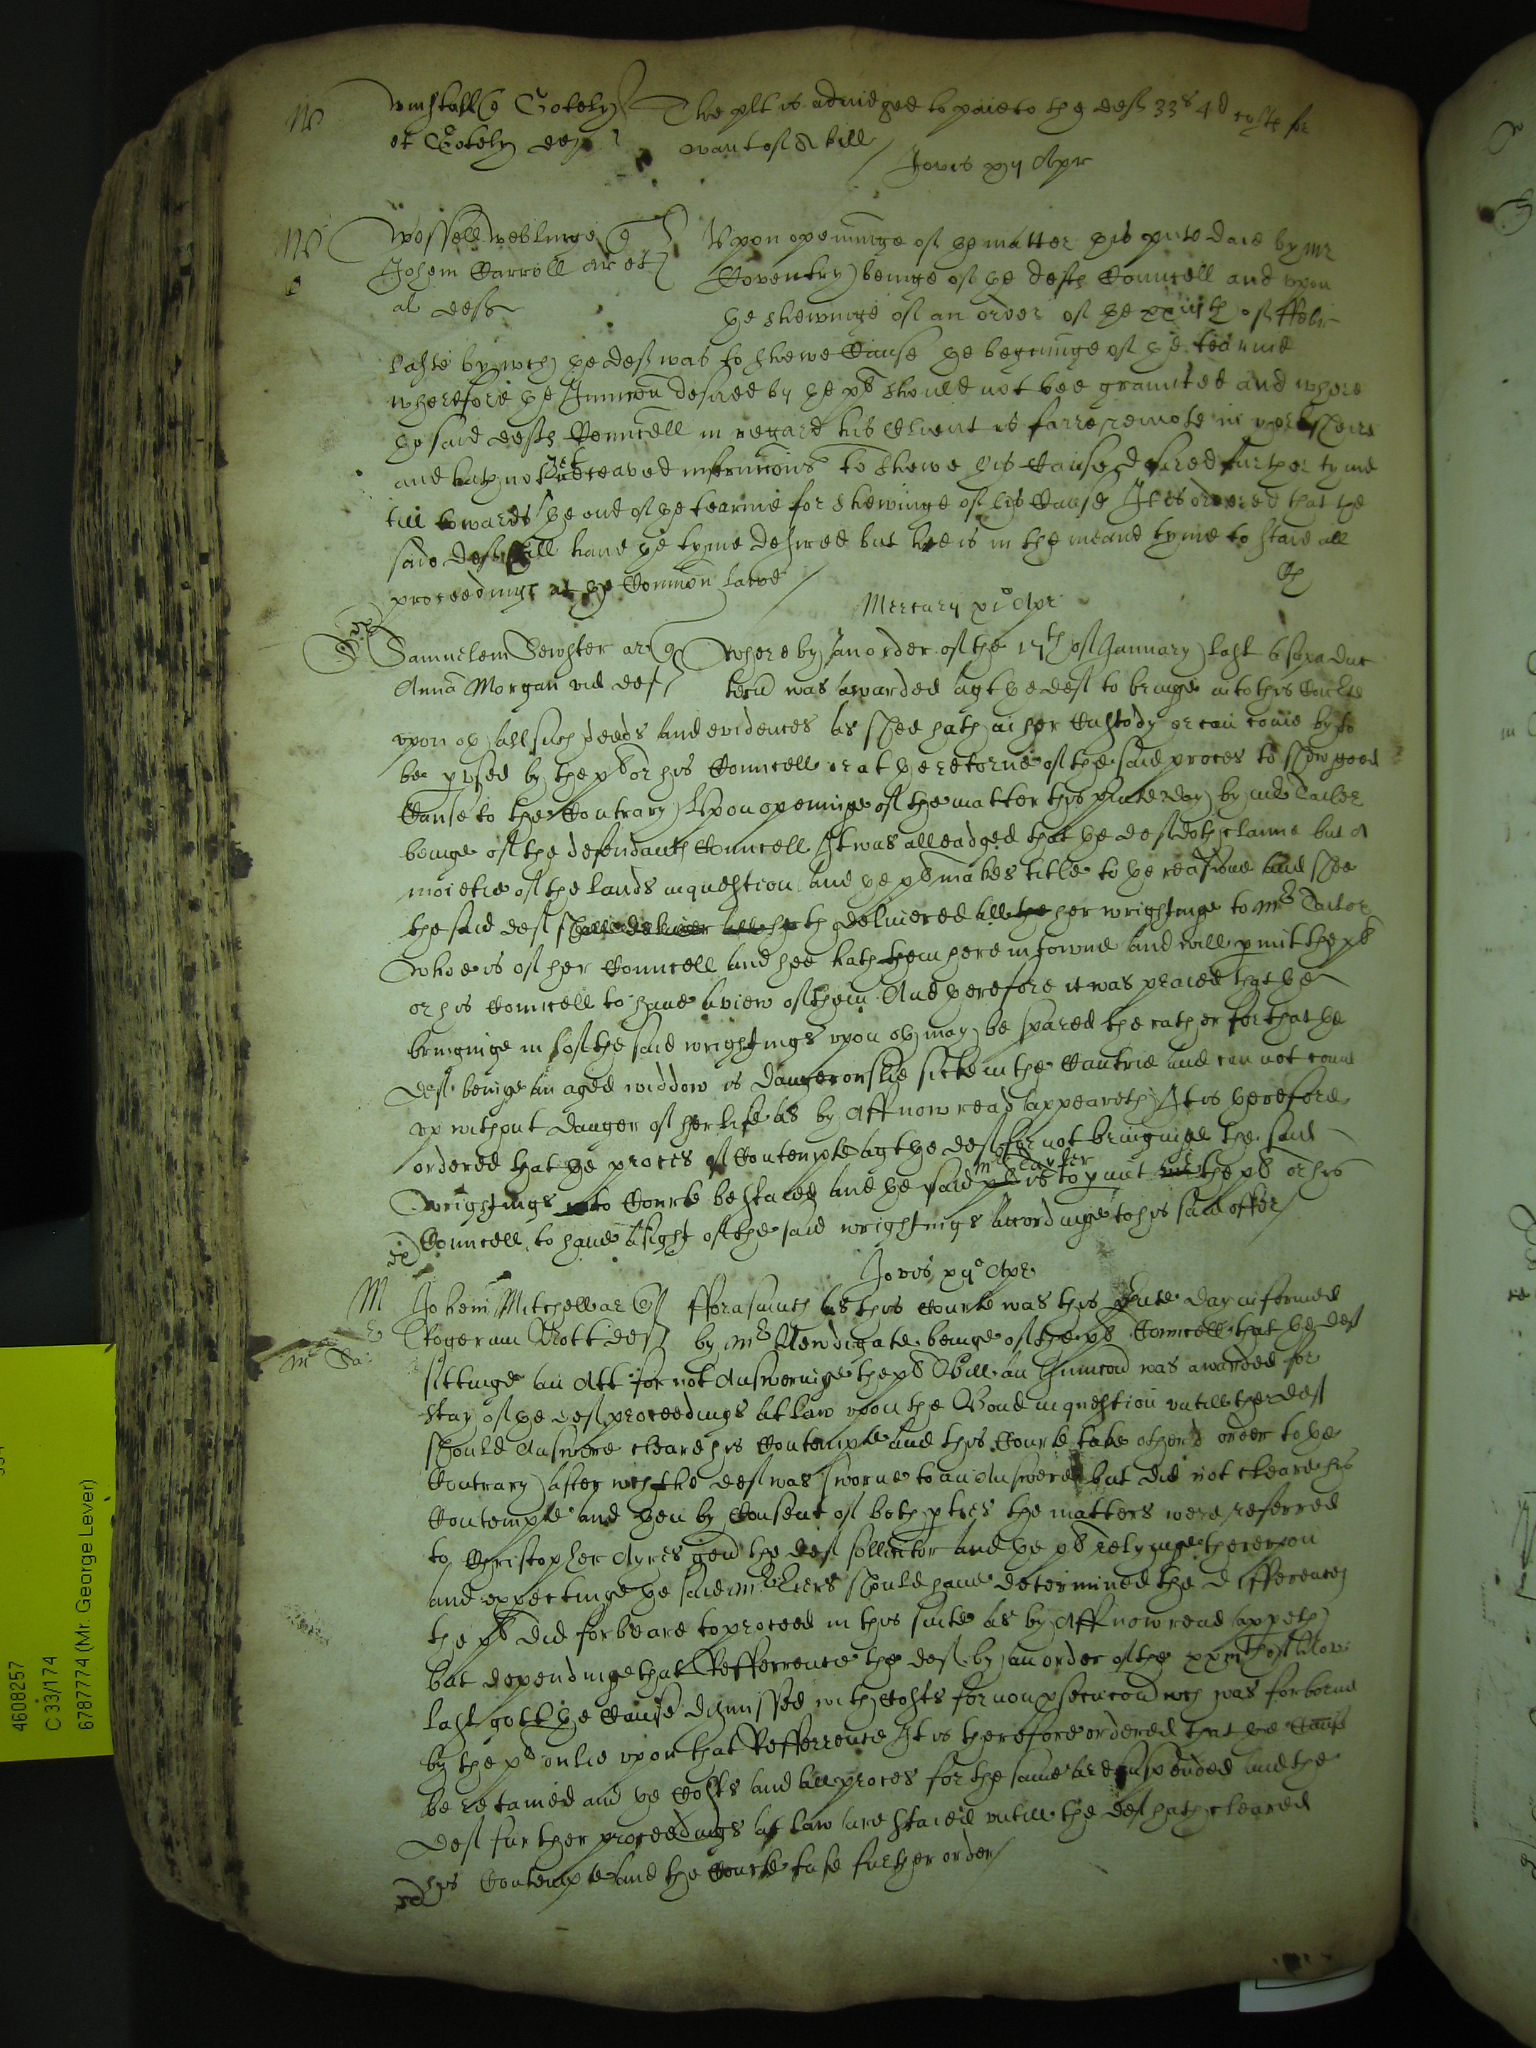 The plt is adiudged to paie to the def 33s 4d costs for
et Gotely def want of A bill
Jovis xij Apr
Upon openinge of ye matter this pnte daie by Mr
Johem Carroll ar et Coventry beinge of ye defts Councell and upon
al defts ye shewinge of an order of ye of Febr
laste by wch ye def was to shewe Cause ye begininge of ye tearme
wherefore ye Iniuncon desired by ye plt should not bee graunted and where
ye said defts Councell in regard his Client is farre remote in yorkesheire
and hath not yet receaved instruccions to shewe his Cause desired further tyme
till towards ye end of ye tearme for shewinge of his Cause It is ordered that the
said deft shall have ye tyme desired but hee is in the meane tyme to staie all
proceedings at ye Common Lawe
Mercurij xi° Apr
Samuelem Sewster ar q Whereby an order of the 17th of January last A spa duc
Anna Morgan vid def tecu was awarded agt ye def to bringe into this Courte
upon oth all such deeds and evidences as shee hath in her Custody or can come by to
be pused by the plt or his Councell or at ye retorne of the said proces to shew good
Cause to the Contrary Upon openinge of the matter this pnte day by mr Tailor
beinge of the defendants Councell It was alleadged that ye def doth claime but A
moietie of the lands in question and ye plt makes title to ye residue and shee
the said def hath delivered all her wrightinge to Mr Tailor
Who is of her Councell and hee hath them here in towne and will pmit the plt
or his Councell to have a view of them And therefore it was praied that ye
bringinge in of the said wrightings upon oth may be spared the rather for that ye
def beinge an aged widdow is dangerouslie sicke in the Cuntrie and can not come
up without danger of her life as by Aff now read appeareth It is therefore
ordered that ye proces of Contempte agt ye def for not bringinge the said
mr Taylor
wrightings into Courte be staied and ye said is to pmit the plt or his
Councell to have a sight of the said wrightings accordinge to his said offer
Jovis xij° Apr
Johem Mitchell ar q Fforasmuch as this Courte was this pnte day informed
Rogerum Nott def by Mr Newdigate beinge of the plt Councell that ye def
sittinge an Att for not Answeringe the plt Bill an Iniuncon was awarded for
stay of ye def proceedings at law upon the Bond in question untill the def
should Answere cleare his Contempte and this Courte take other order to ye
Contrary after wch the def was sworne to an Answere but did not cleare his
Contempte and then by Consent of both pties the matters were referred
to Christopher Ayres gen the def sollicitor and ye plt relyinge thereupon
and expectinge ye said Mr Eiers should have determined the differences
the plt did forbeare to proceed in this suite as by Aff now read appeth
but dependinge that Refferrence the def by an order of the of Nov:
last gott ye Cause dismissed with Costs for non psecucon wch was forborne
by the plt onlie upon that Refferrence It is therefore ordered that ye Cause
be retained and ye Costs and all proces for the same are suspended and the
def further proceedings at law are staied untill the def hath cleared
his Contempte and the Courte take further order
4608257
C 33/174
6787774 (Mr. George Lever)